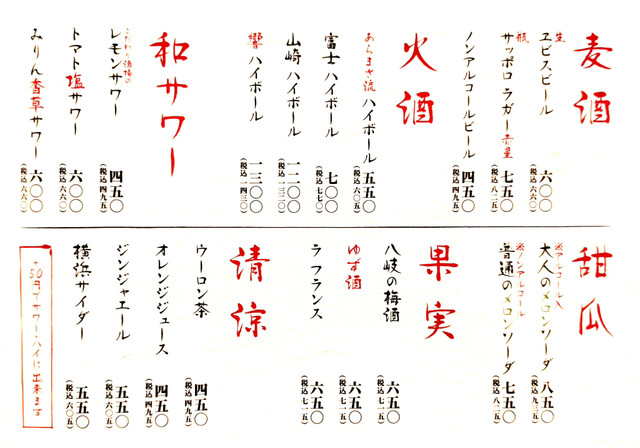 麦酒
生 ヱビスビール 六〇〇 (税込 六六〇)
瓶 サッポロ ラガー 赤星 七五〇 (税込 八二五)
ノンアルコールビール 四五〇 (税込 四九五)
火酒
あらまさ流 ハイボール 五五〇 (税込 六〇五)
富士ハイボール 七〇〇 (税込 七七〇)
山崎ハイボール 一二〇〇
響ハイボール 一三〇〇 (税込 一四三〇)
和サワー
こだわり酒場の レモンサワー 四五〇 (税込 四九五)
トマト塩サワー 六〇〇 (税込 六六〇)
みりん香草サワー 六〇〇 (税込 六六〇)
甜瓜
※アルコール入 大人のメロンソーダ 八五〇 (税込 九三五)
※ノンアルコール 普通のメロンソーダ 七五〇 (税込 八二五)
果実
八岐の梅酒 六五〇 (税込 七一五)
ゆず酒 六五〇 (税込 七一五)
ラ フランス 六五〇 (税込 七一五)
清涼
ウーロン茶 四五〇 (税込 四九五)
オレンジジュース 四五〇 (税込 四九五)
ジンジャエール 五五〇 (税込 六〇五)
横浜サイダー 五五〇 (税込 六〇五)
+50円でサワー・ハイに出来ます